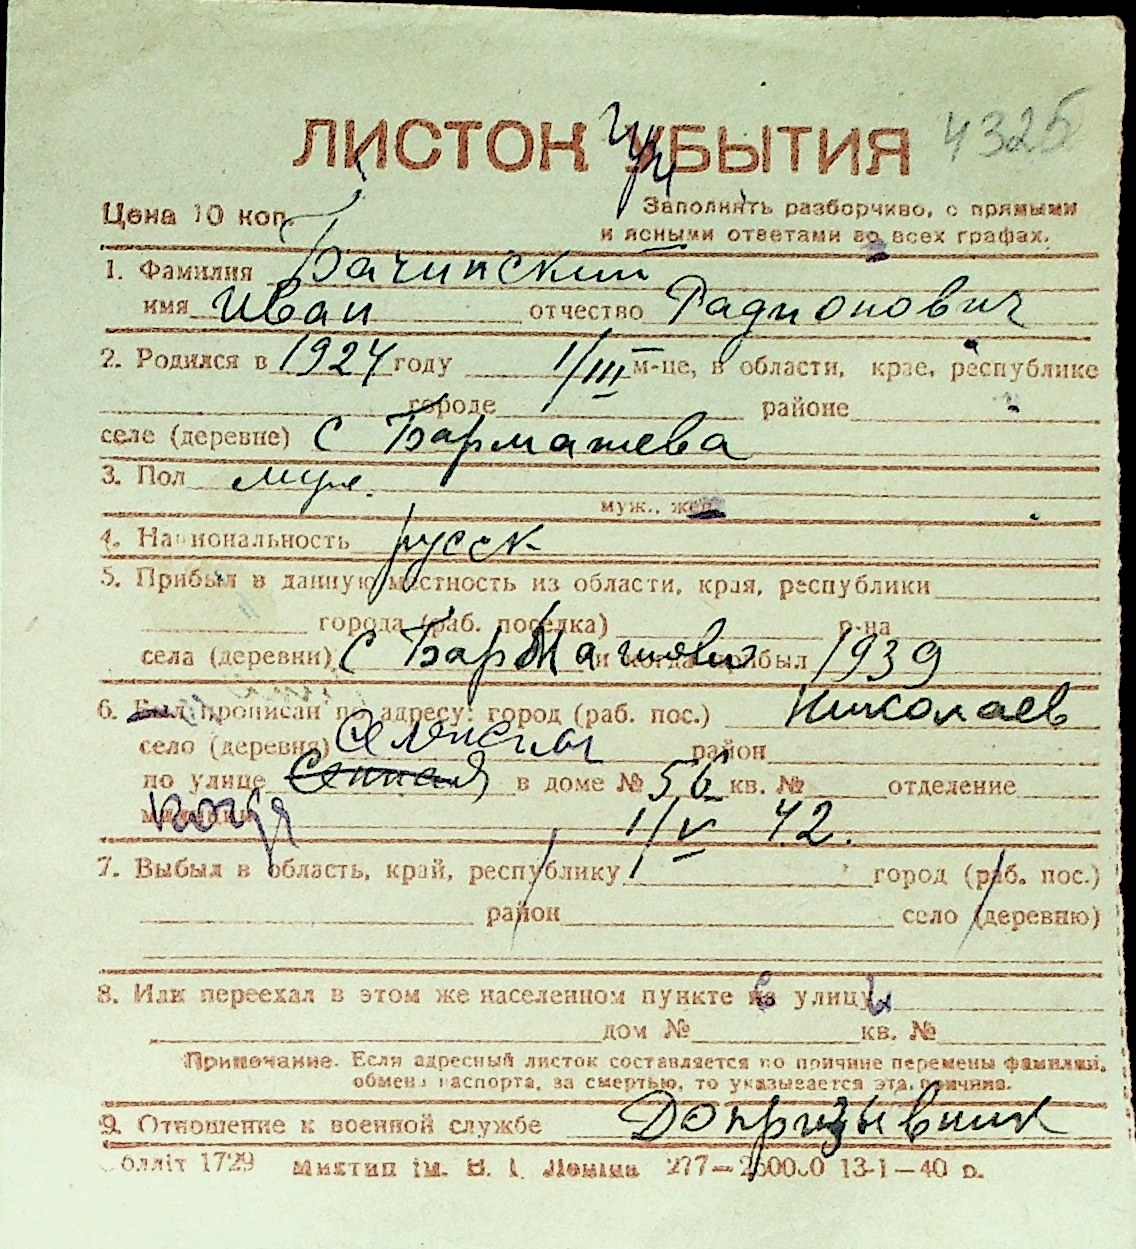 ЛИСТОК УБЫТИЯ 4325
Цена 10 коп. Заполнять разборчиво, с прямыми
и ясными ответами во всех графах.
1. Фамилия Бачинский
имя Иван отчество Радионович
2. Родился в 1924 году 1/III м-це, в области, крае, республике
городе районе
селе (деревне) с Бармашева
3. Пол муж.
муж., жен.
4. Национальность русск
5. Прибыл в данную местность из области, края, республики
города (раб. поселка) р-на
села (деревни) с и когда прибыл 1939
6. Был прописан по адресу: город (раб. пос.) Николаев
село (деревня) район
по улице Сенная в доме № 56 кв. № отделение
милиции когда 1/V 42.
7. Выбыл в область, край, республику город (раб. пос.)
район село (деревню)
8. Или переехал в этом же населенном пункте улицу
дом № кв. №
Примечание. Если адресный листок составляется по причине перемены фамилии,
обмена паспорта, за смертью, то указывается эта причина.
9. Отношение к военной службе Допризывник
Обллiт 1729 Миктип iм. В. I. Ленiна 277—250000 13-1—40 р.